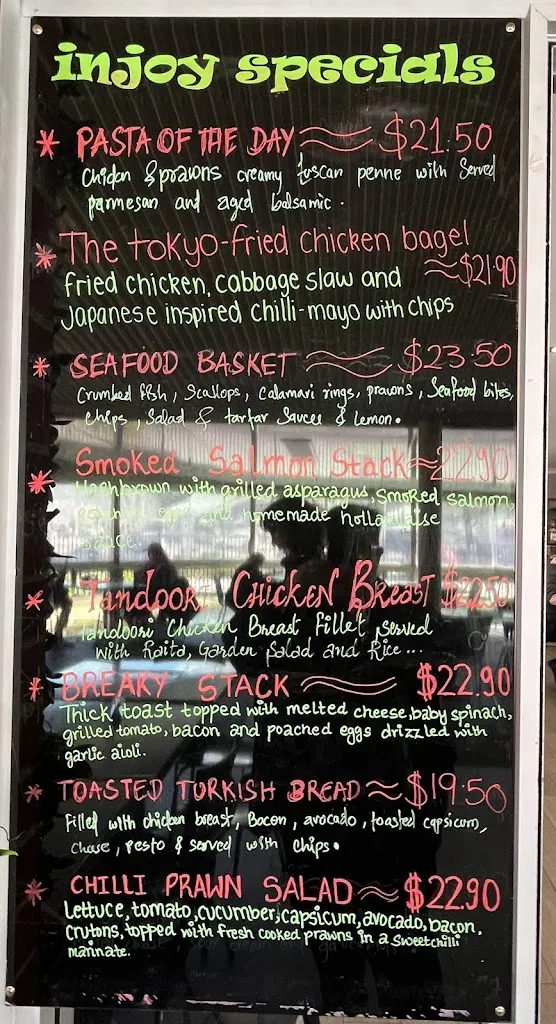 injoy specials
* PASTA OF THE DAY $21.50
Chicken & prawns creamy tuscan penne with Served
parmesan and aged balsamic.
* The tokyo-fried chicken bagel
$21.90
fried chicken, cabbage slaw and
Japanese inspired chilli-mayo with chips
* SEAFOOD BASKET $23.50
Crumbed fish, Scallops, Calamari rings, prawns, Seafood bites,
chips, Salad & tartar Sauces & Lemon.
* Smoked Salmon Stack 22.90
Hashbrown with grilled asparagus, smoked salmon,
poached eggs and homemade hollandaise
sauce.
* Tandoori Chicken Breast $22.50
Tandoori Chicken Breast fillet served
with Raita, Garden Salad and Rice...
* BREAKY STACK $22.90
Thick toast topped with melted cheese, baby spinach,
grilled tomato, bacon and poached eggs drizzled with
garlic aioli.
* TOASTED TURKISH BREAD $19.50
Filled with chicken breast, Bacon, avocado, toasted capsicum,
Chesse, Pesto & served with chips.
* CHILLI PRAWN SALAD $22.90
Lettuce, tomato, cucumber, capsicum, avocado, bacon,
crutons, topped with fresh cooked prawns in a sweet chilli
marinate.